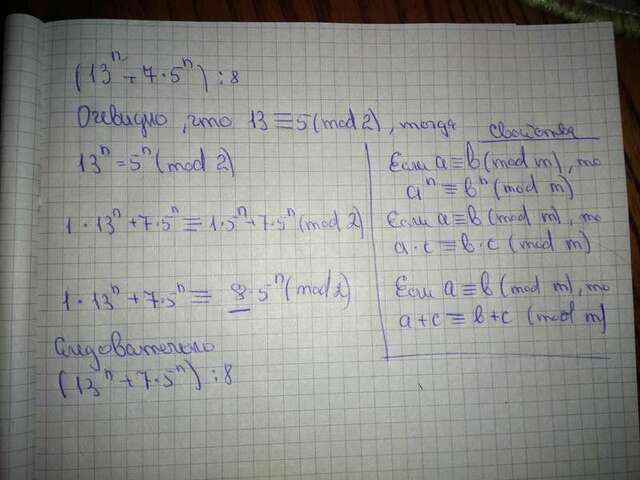 (13ⁿ + 7·5ⁿ) ⋮ 8
Очевидно, что 13 ≡ 5 (mod 2), тогда
13ⁿ = 5ⁿ (mod 2)
1·13ⁿ + 7·5ⁿ ≡ 1·5ⁿ + 7·5ⁿ (mod 2)
1·13ⁿ + 7·5ⁿ ≡ 8·5ⁿ (mod 2)
Следовательно
(13ⁿ + 7·5ⁿ) ⋮ 8
Свойства
Если a ≡ b (mod m), то
aⁿ ≡ bⁿ (mod m)
Если a ≡ b (mod m), то
a·c ≡ b·c (mod m)
Если a ≡ b (mod m), то
a+c ≡ b+c (mod m)